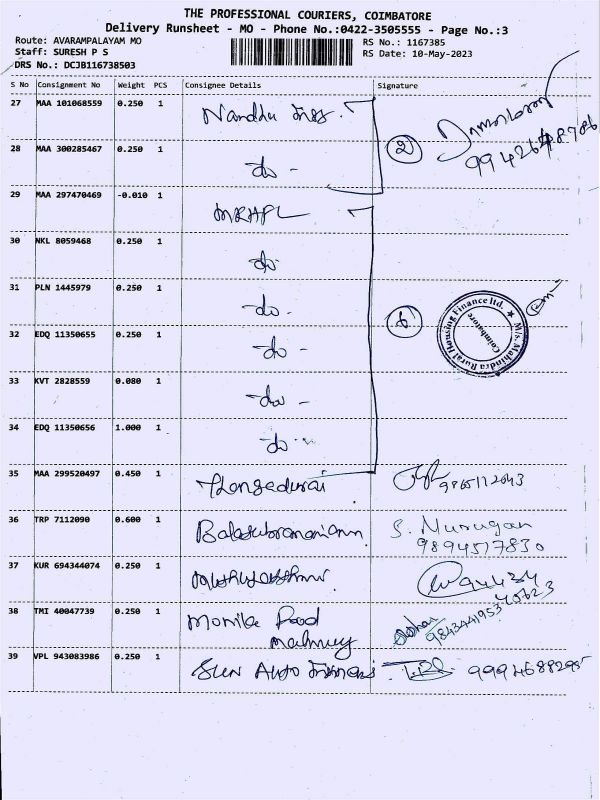 THE PROFESSIONAL COURIERS, COIMBATORE
Delivery Runsheet - MO - Phone No.:0422-3505555 - Page No.:3
Route: AVARAMPALAYAM MO
RS No.: 1167385
Staff: SURESH P S
RS Date: 10-May-2023
DRS No.: DCJB116738503
S No Consignment No Weight PCS Consignee Details Signature
27 MAA 101068559 0.250 1 Nandhu
28 MAA 300285467 0.250 1 do -
2
29 MAA 297470469 -0.010 1 MRHFL
30 NKL 8059468 0.250 1 do
31 PLN 1445979 0.250 1 do -
6
M/s. Mahindra Rural Housing Finance ltd.
Coimbatore
32 EDQ 11350655 0.250 1 do -
33 KVT 2828559 0.080 1 do -
34 EDQ 11350656 1.000 1 do
35 MAA 299520497 0.450 1 Thangadurai
36 TRP 7112090 0.600 1 Balasubramaniam S. Murugan
9894517830
37 KUR 694344074 0.250 1
38 TMI 40047739 0.250 1 Monika Food
39 VPL 943083986 0.250 1 Sun Auto